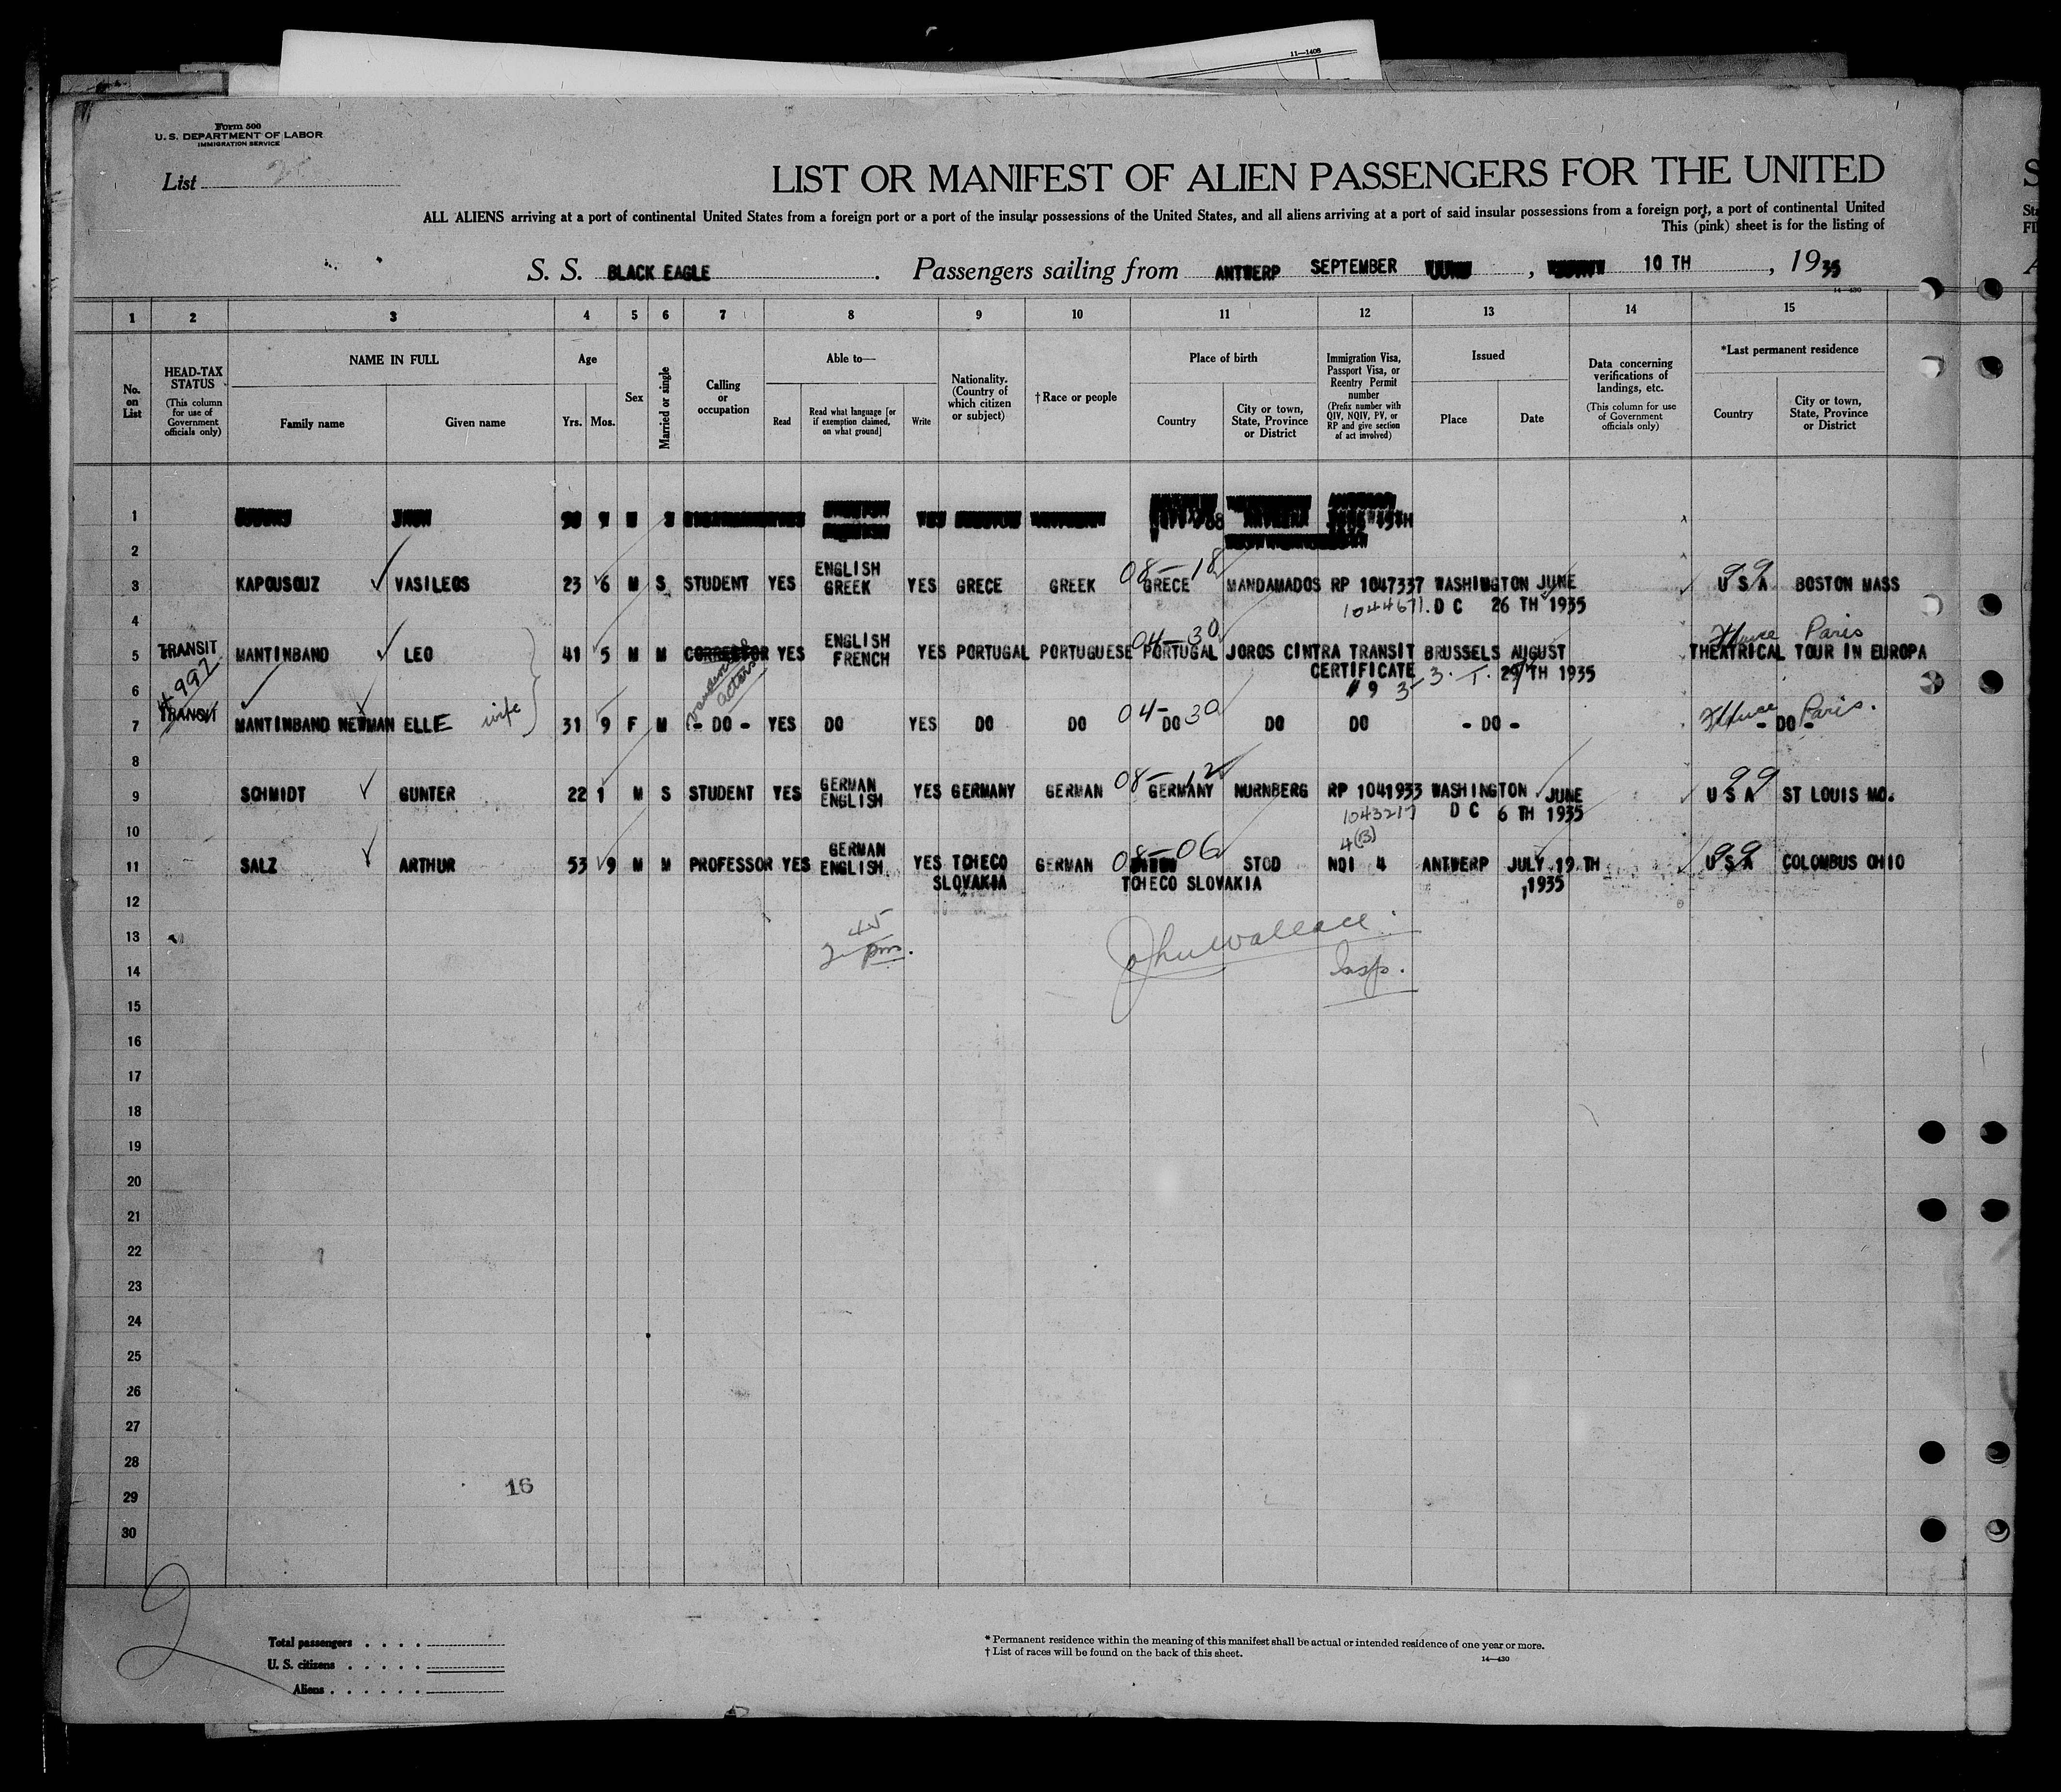 11—1408
Form 500
U. S. DEPARTMENT OF LABOR
IMMIGRATION SERVICE
List
LIST OR MANIFEST OF ALIEN PASSENGERS FOR THE UNITED
ALL ALIENS arriving at a port of continental United States from a foreign port or a port of the insular possessions of the United States, and all aliens arriving at a port of said insular possessions from a foreign port, a port of continental United
This (pink) sheet is for the listing of
S. S. BLACK EAGLE . Passengers sailing from ANTWERP SEPTEMBER , 10 TH , 1935
14—430
1 2 3 4 5 6 7 8 9 10 11 12 13 14 15
No. on List
HEAD-TAX STATUS (This column for use of Government officials only)
NAME IN FULL
Family name Given name
Age
Yrs. Mos.
Sex
Married or single
Calling or occupation
Able to—
Read Read what language [or if exemption claimed, on what ground] Write
Nationality. (Country of which citizen or subject)
† Race or people
Place of birth
Country City or town, State, Province or District
Immigration Visa, Passport Visa, or Reentry Permit number (Prefix number with QIV, NQIV, PV, or RP and give section of act involved)
Issued
Place Date
Data concerning verifications of landings, etc. (This column for use of Government officials only)
*Last permanent residence
Country City or town, State, Province or District
1
2
08—18 99
3 KAPOUSOUZ VASILEOS 23 6 M S STUDENT YES ENGLISH GREEK YES GRECE GREEK GRECE MANDAMADOS RP 1047337 WASHINGTON JUNE U S A BOSTON MASS
1044671. D C 26 TH 1935
4
04—30 Paris
5 TRANSIT MANTINBAND LEO 41 5 M M CORRECTOR YES ENGLISH FRENCH YES PORTUGAL PORTUGUESE PORTUGAL JOROS CINTRA TRANSIT BRUSSELS AUGUST THEATRICAL TOUR IN EUROPA
CERTIFICATE 29 TH 1935
actors
6 # 9 3-3.
04-30 Paris.
7 TRANSIT MANTINBAND NEWMAN ELLE wife 31 9 F M - DO - YES DO YES DO DO DO DO DO - DO - - DO -
8
08—12 99
9 SCHMIDT GUNTER 22 1 M S STUDENT YES GERMAN ENGLISH YES GERMANY GERMAN GERMANY NURNBERG RP 1041933 WASHINGTON JUNE U S A ST LOUIS MO.
1043217 D C 6 TH 1935
10 4(B)
08—06 99
11 SALZ ARTHUR 53 9 M M PROFESSOR YES GERMAN ENGLISH YES TCHECO SLOVAKIA GERMAN TCHECO SLOVAKIA STOD NQI 4 ANTWERP JULY 19 TH 1935 U S A COLOMBUS OHIO
12
13 2 45 pm. John Wallace
14 Insp.
15
16
17
18
19
20
21
22
23
24
25
26
27
28
29 16
30
2
Total passengers . . . .
U. S. citizens . . . . .
Aliens . . . . . .
* Permanent residence within the meaning of this manifest shall be actual or intended residence of one year or more.
† List of races will be found on the back of this sheet.
14—430